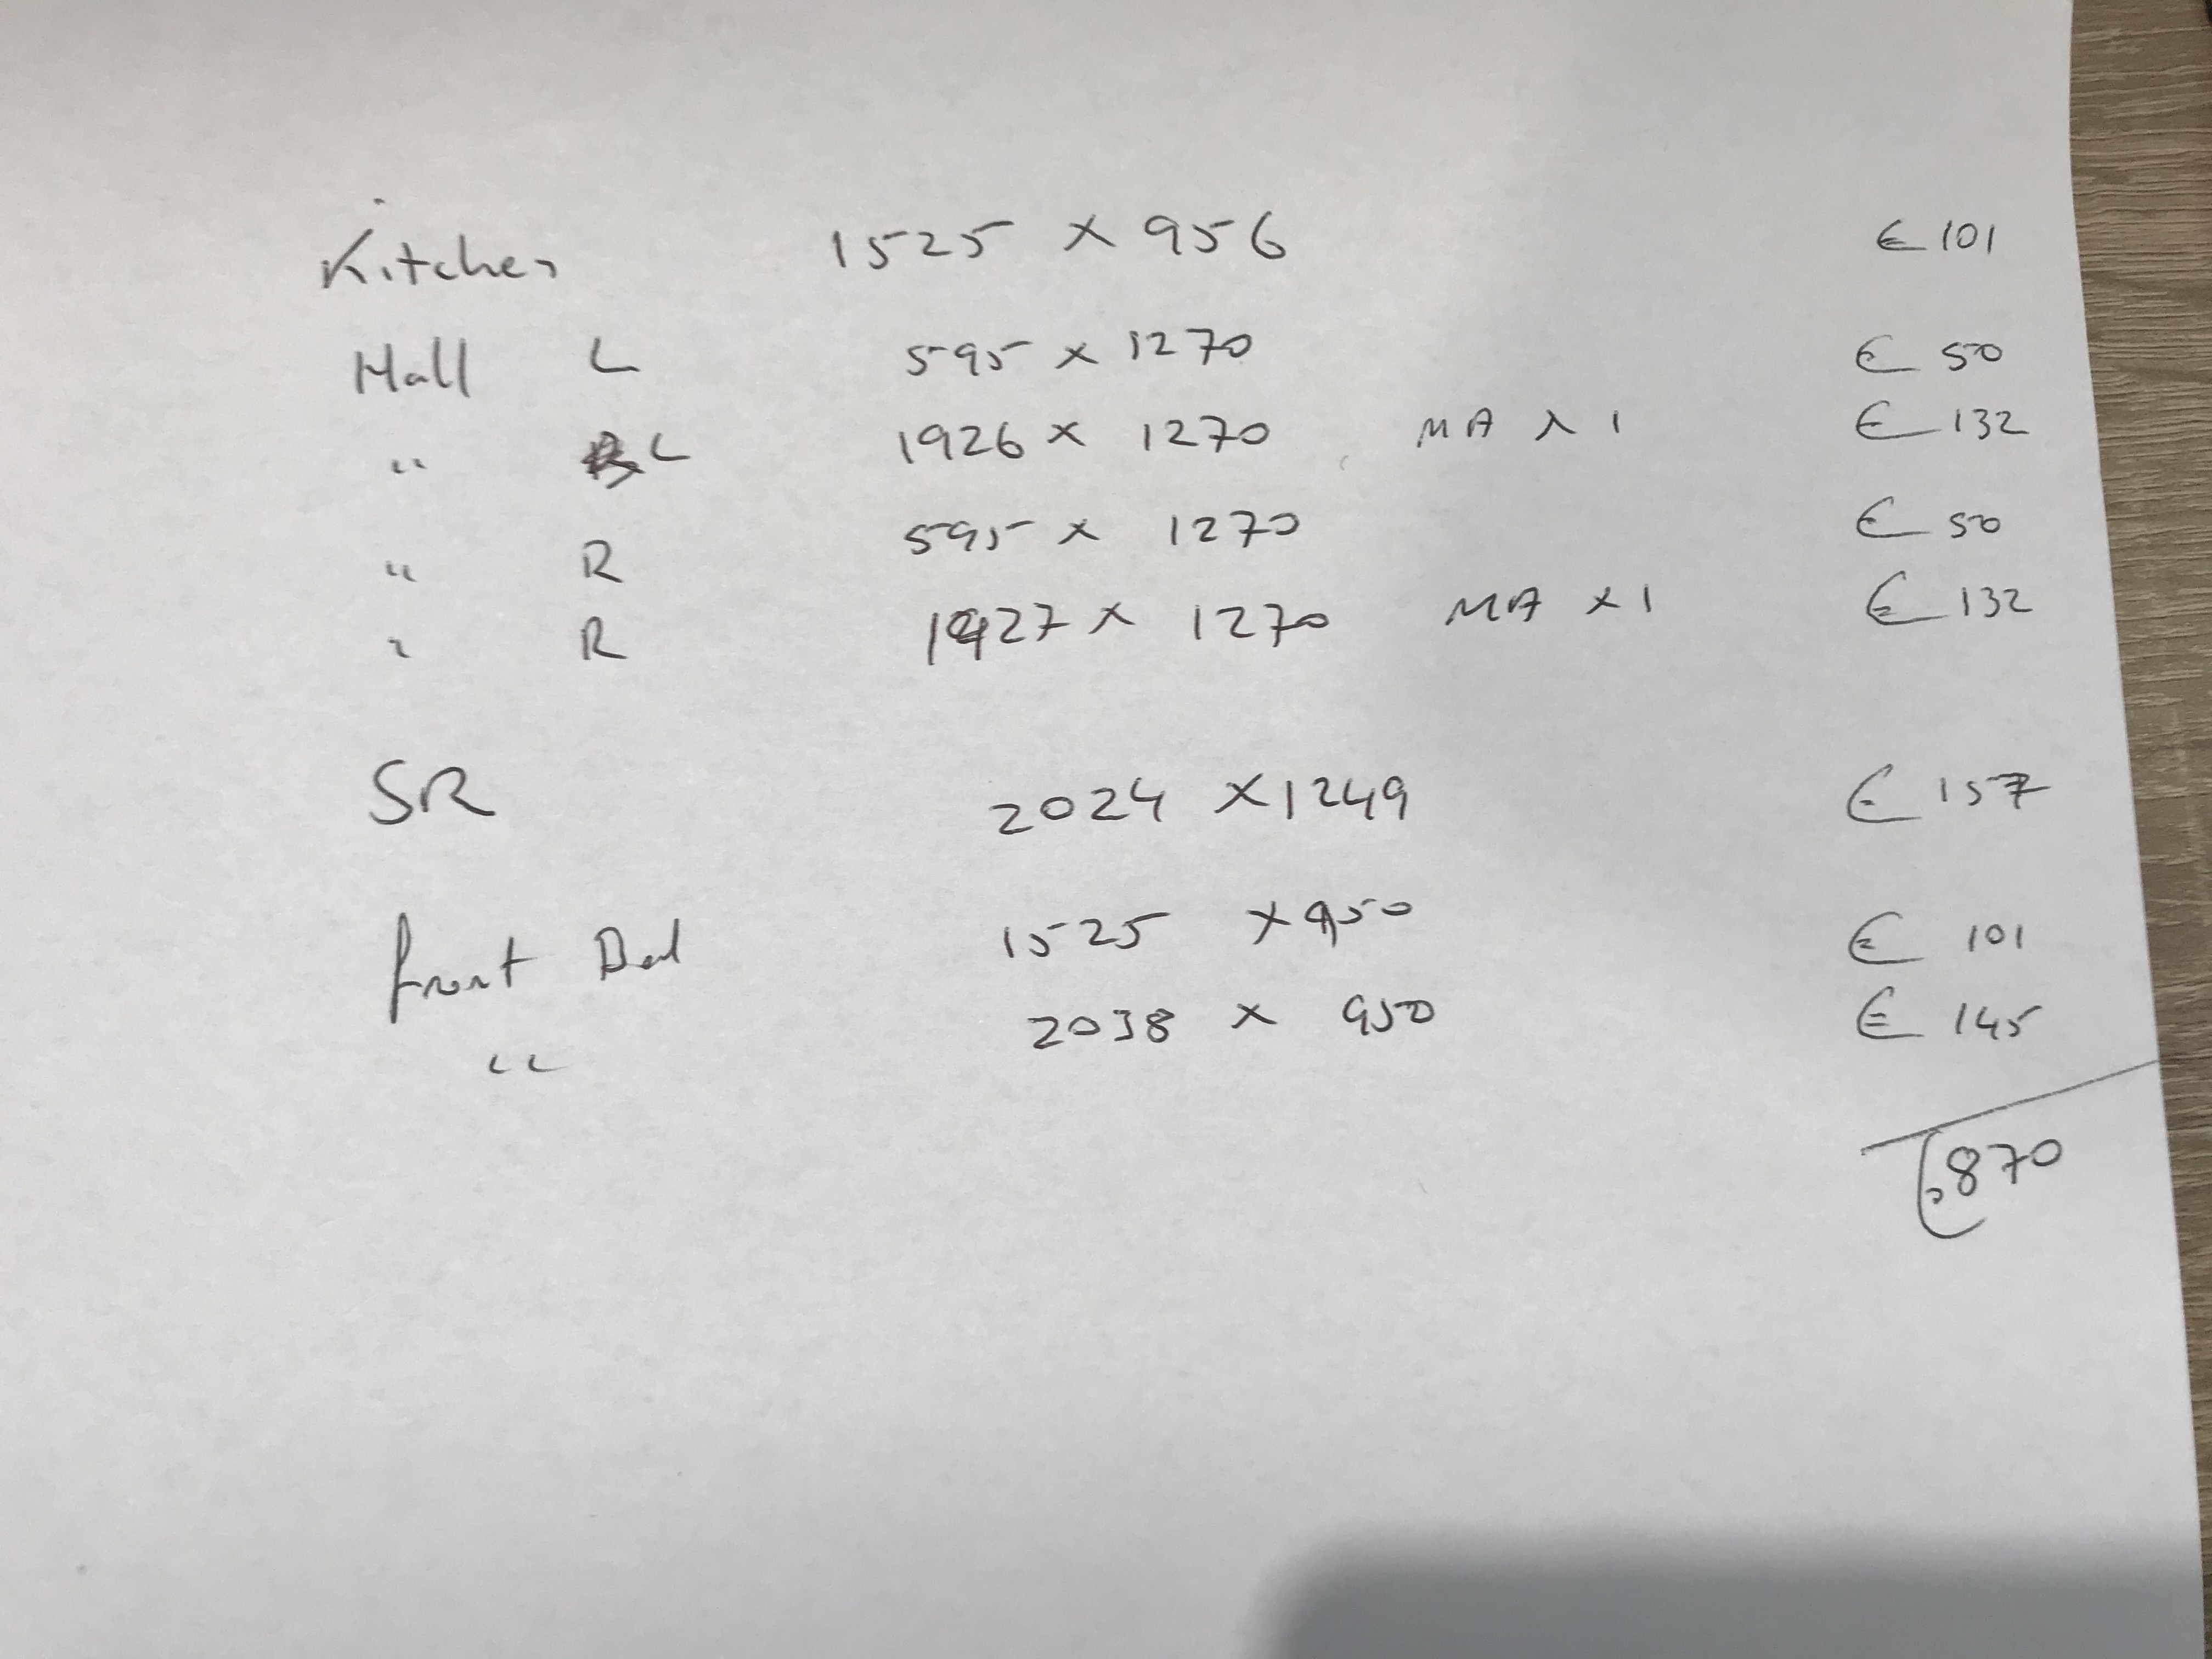 Kitchen 1525 x 956 € 101
Hall L 595 x 1270 € 50
" L 1926 x 1270 MA x 1 € 132
" R 595 x 1270 € 50
" R 1927 x 1270 MA x 1 € 132
SR 2024 x 1249 € 157
front Bed 1525 x 950 € 101
" 2038 x 950 € 145
€ 870